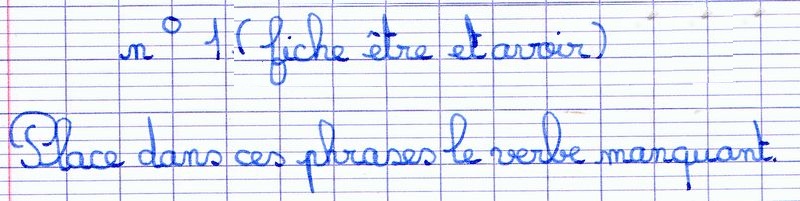 n° 1 (fiche être et avoir)
Place dans ces phrases le verbe manquant.